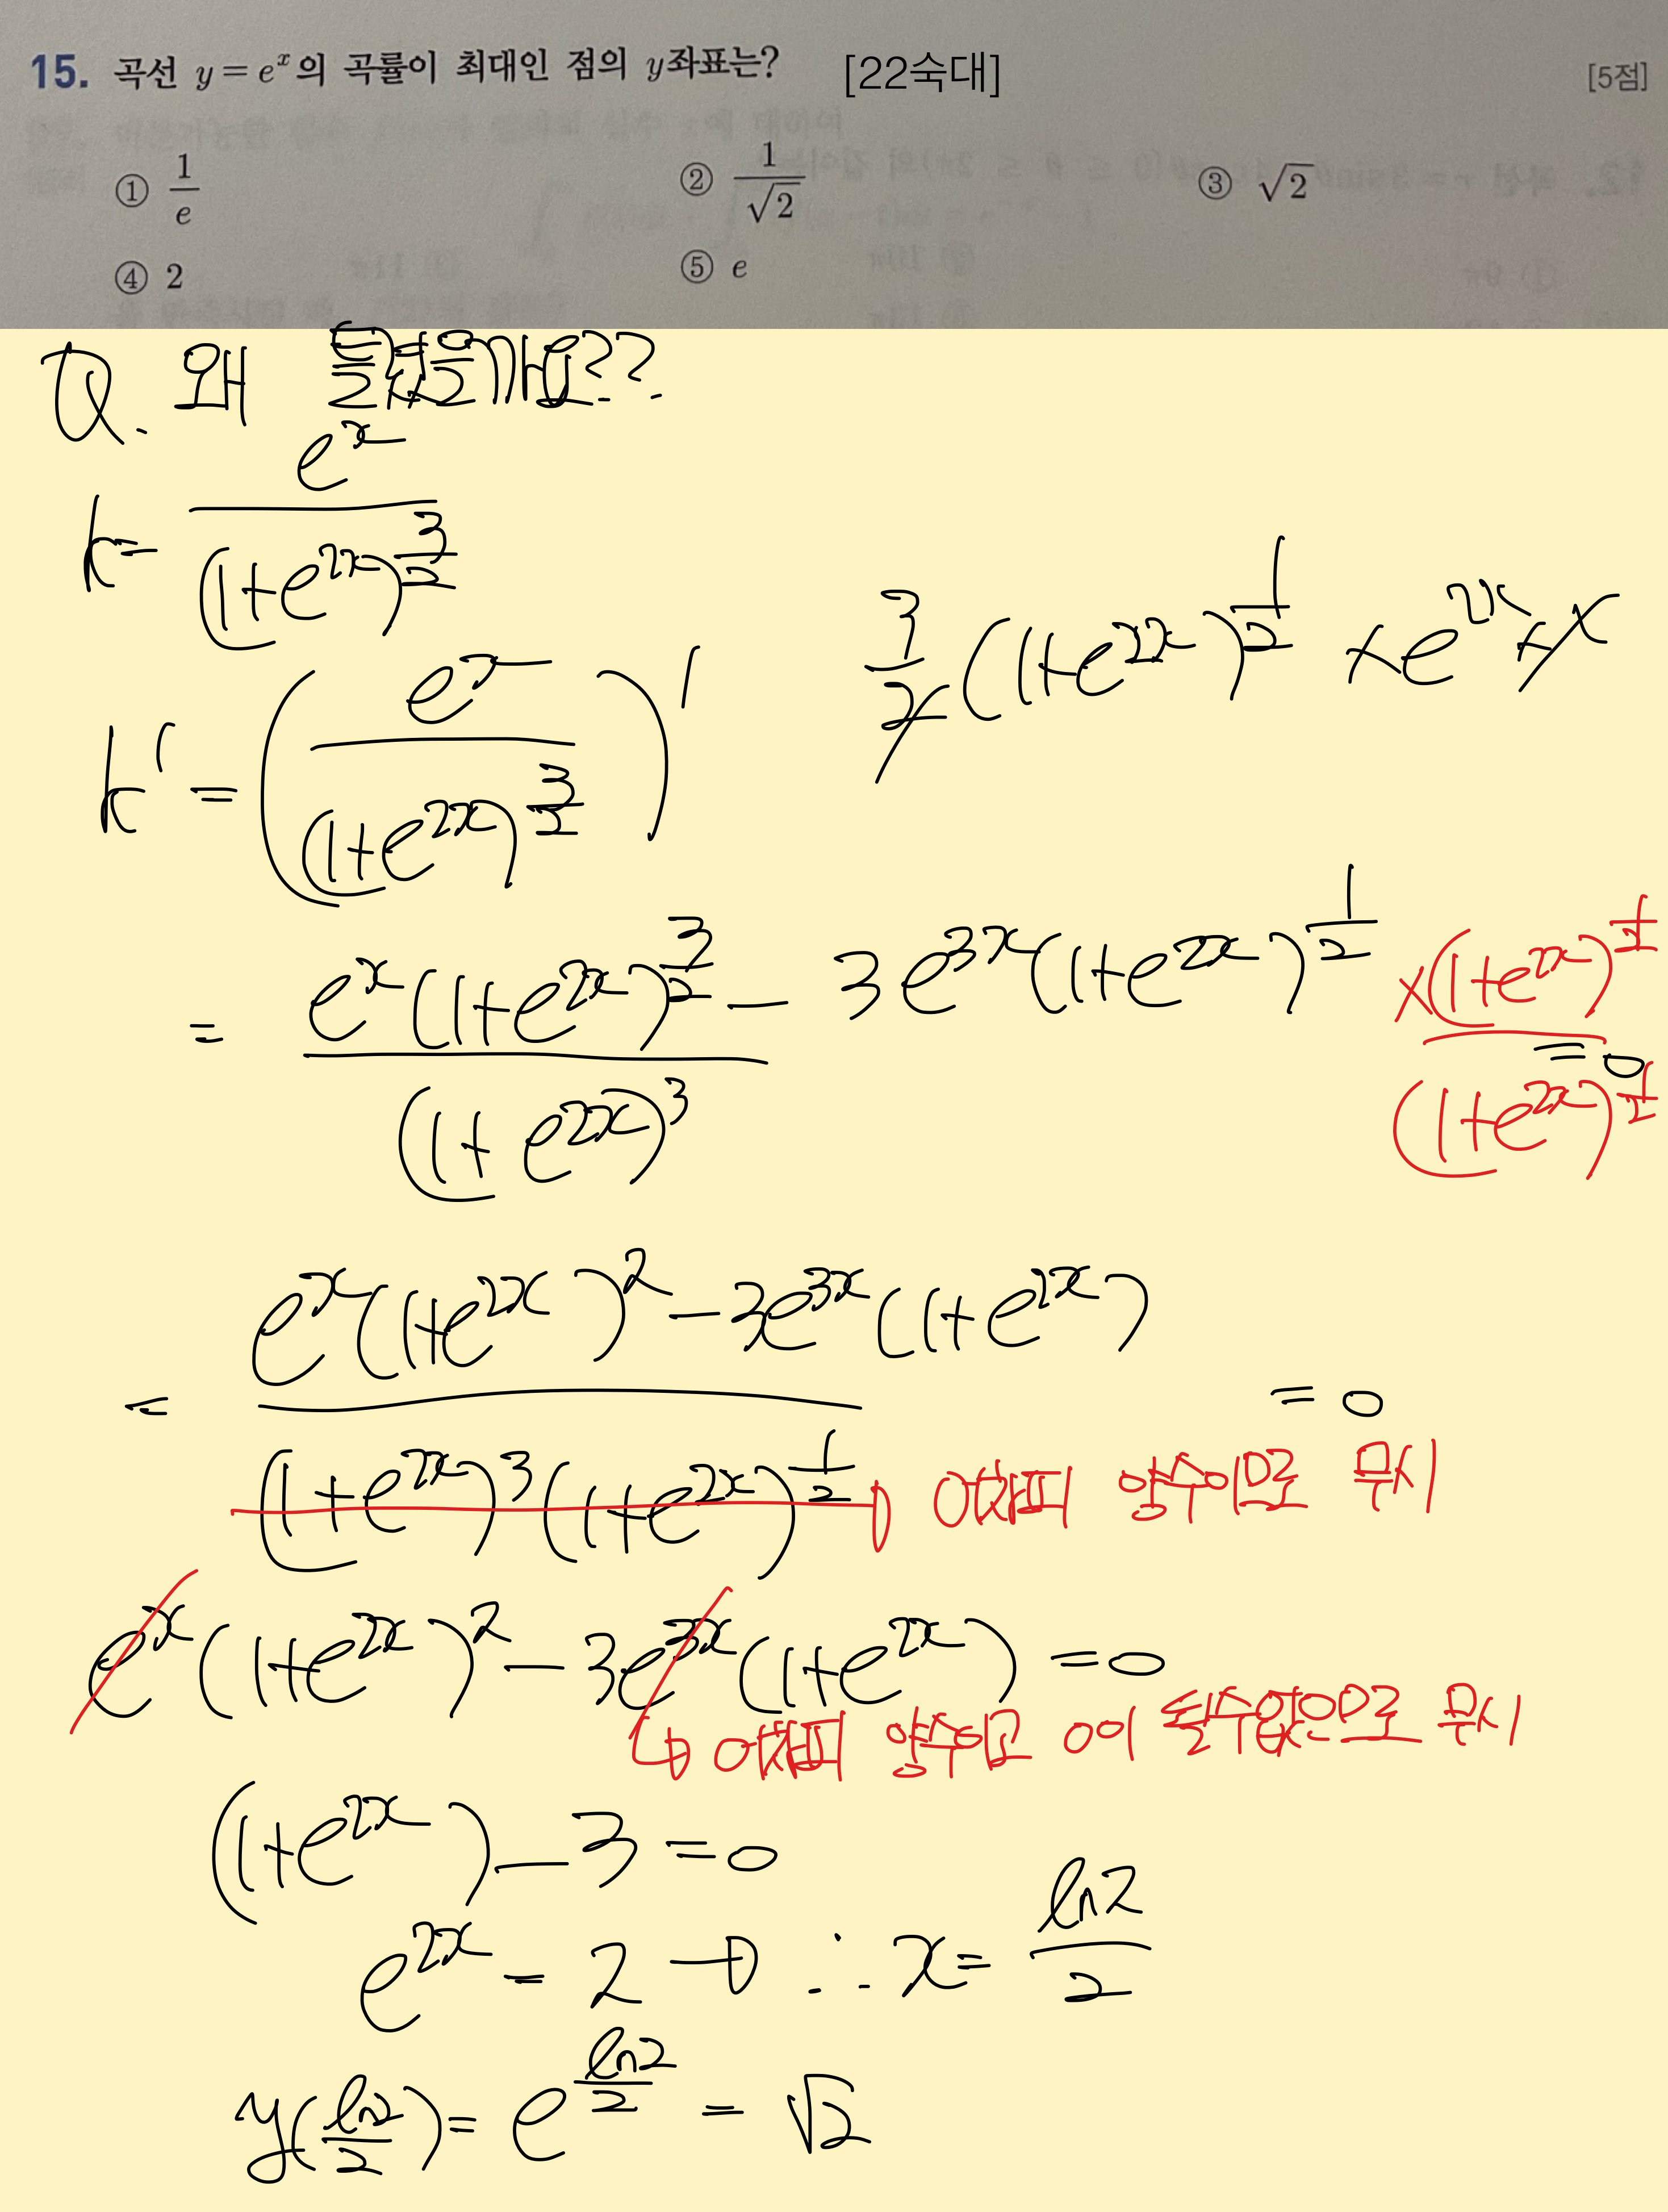 15. 곡선 y = e^x의 곡률이 최대인 점의 y좌표는? [22숙대] [5점]
① 1/e ② 1/√2 ③ √2
④ 2 ⑤ e
Q. 왜 틀렸을까요??
k = e^x / (1+e^{2x})^{3/2}
3/2 (1+e^{2x})^{1/2} × e^{2x} × 2
k' = ( e^x / (1+e^{2x})^{3/2} )'
= ( e^x(1+e^{2x})^{3/2} − 3e^{3x}(1+e^{2x})^{1/2} ) / (1+e^{2x})^3 = 0
×(1+e^{2x})^{1/2} / (1+e^{2x})^{1/2}
= ( e^x(1+e^{2x})^2 − 3e^{3x}(1+e^{2x}) ) / ( (1+e^{2x})^3 (1+e^{2x})^{1/2} ) = 0
→ 어차피 양수이므로 무시
e^x(1+e^{2x})^2 − 3e^{3x}(1+e^{2x}) = 0
↳ 어차피 양수이고 0이 될수없으므로 무시
(1+e^{2x}) − 3 = 0
e^{2x} = 2 → ∴ x = ln2/2
y(ln2/2) = e^{ln2/2} = √2